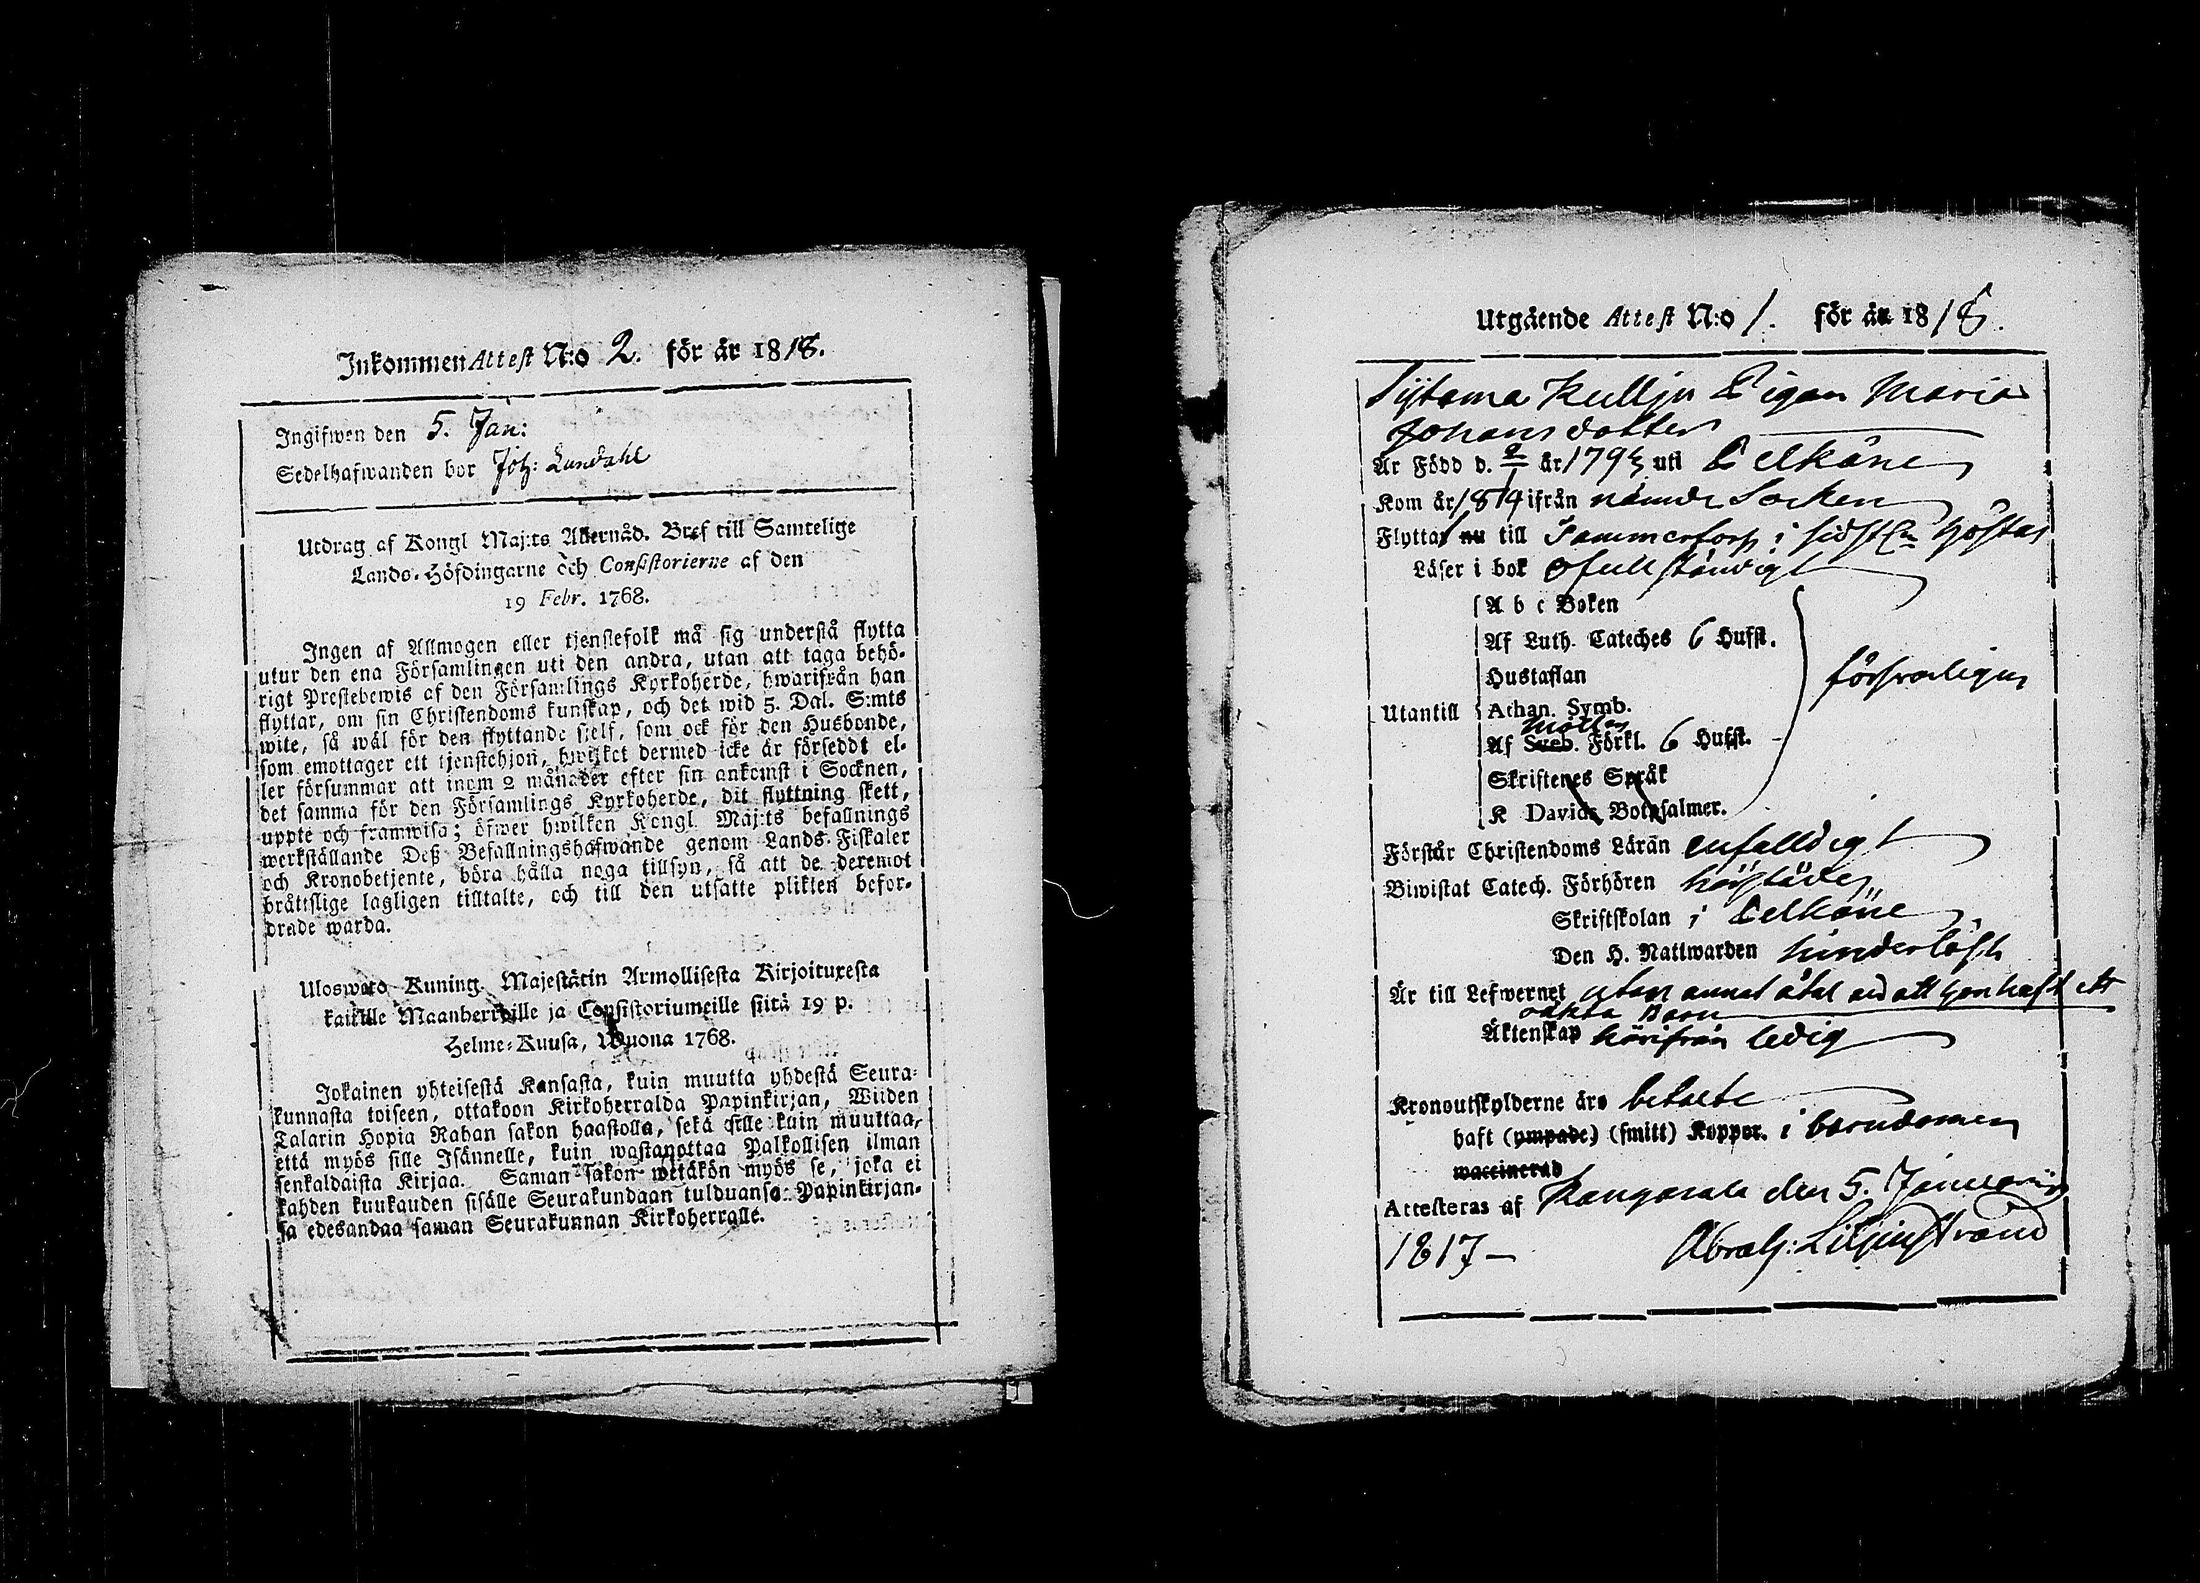 Inkommen Attest N:o 2. för år 1818.
Ingifwen den 5. Jan:
Sedelhafwanden bor Joh: Lundahl
Utdrag af Kongl Maj:ts Allernåd. Bref till Samtelige
Lands-Höfdingarne och Consistorierne af den
19 Febr. 1768.
Ingen af Allmogen eller tjenstefolk må sig understå flytta
utur den ena Församlingen uti den andra, utan att taga behö-
rigt Prestebewis af den Församlings Kyrkoherde, hwarifrån han
flyttar, om sin Christendoms kunskap, och det wid 5. Dal. S:mts
wite, så wäl för den flyttande sjelf, som ock för den Husbonde,
som emottager ett tjenstehjon, hwilket dermed icke är försedt el-
ler försummar att inom 2 månader efter sin ankomst i Socknen,
det samma för den Församlings Kyrkoherde, dit flyttning skett,
uppte och framwisa; öfwer hwilken Kongl Maj:ts befallnings
werkställande Deß Befallningshafwande genom Lands-Fiskaler
och Kronobetjente, böra hålla noga tillsyn, så att de deremot
bråttslige lagligen tilltalte, och till den utsatte plikten befor-
drade warda.
Uloswetd Kuning. Majestätin Armollisesta Kirjoituxesta
kaikille Maanherroille ja Consistoriumeille siitä 19 p.
Helme-Kuusa, Wuona 1768.
Jokainen yhteisestä Kansasta, kuin muutta yhdestä Seura-
kunnasta toiseen, ottakoon Kirkoherralda Papinkirjan, Wiiden
Talarin Hopia Rahan sakon haastolla, sekä sille kuin muuttaa,
että myös sille Isännelle, kuin wastanottaa Palkollisen ilman
senkaldaista Kirjaa. Saman sakon wetäkön myös se, joka ei
kahden kuukauden sisälle Seurakundaan tulduansa Papinkirjan-
sa edesandaa saman Seurakunnan Kirkoherralle.
Utgående Attest N:o 1. för år 1818.
Tijtama Kullju Pigan Maria
Johansdotter
Är Född d. 2/1 år 1793 uti Pelkäne
Kom år 1814 ifrån nämde Socken
Flyttar nu till Tammerfors i sidstl:ne höstas
Läser i bok ofullständigt
A b c Boken
Af Luth. Cateches 6 Hufst.
Hustaflan
försvarligen
Utantill Athan. Symb.
Möllers
Af Sveb. Förkl. 6 Hufst.
Skriftenes Språk
K Davids Botpsalmer.
Förstår Christendoms Läran enfalldigt
Biwistat Catech. Förhören
Skriftskolan i Pelkäne
Den H. Nattwarden hinderlöst
Är till Lefwernet utan annat åtal än att hon haft ett
oäkta Barn
Äktenskap härifrån ledig
Kronoutskylderne äro betalte
haft (ympade) (smitt) Koppor. i barndomen
waccinerad
Attesteras af Kangasala den 5. Januarii
1817 — Abrah: Liljenstrand